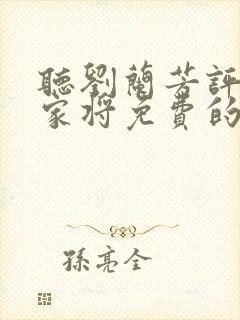 聽劉蘭芳評
家將免費的
孫亮全